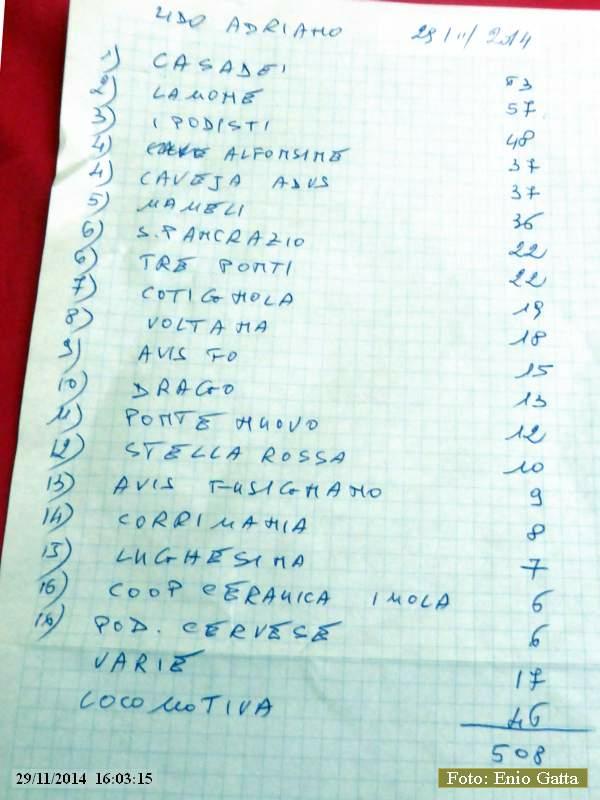 LIDO ADRIANO 29/11/2014
1) CASADEI
2) LAMONE 57
3) I PODISTI 48
4) ALFONSINE 37
4) CAVEJA ADVS 37
5) MAMELI 36
6) S. PANCRAZIO 22
6) TRE PONTI 22
7) COTIGNOLA 19
8) VOLTANA 18
9) AVIS FO 15
10) DRAGO 13
11) PONTE NUOVO 12
12) STELLA ROSSA 10
13) AVIS FUSIGNANO 9
14) CORRIMANIA 8
15) LUGHESINA 7
16) COOP CERAMICA IMOLA 6
16) POD. CERVESE 6
VARIE 17
LOCOMOTIVA 46
508
29/11/2014 16:03:15
Foto: Enio Gatta